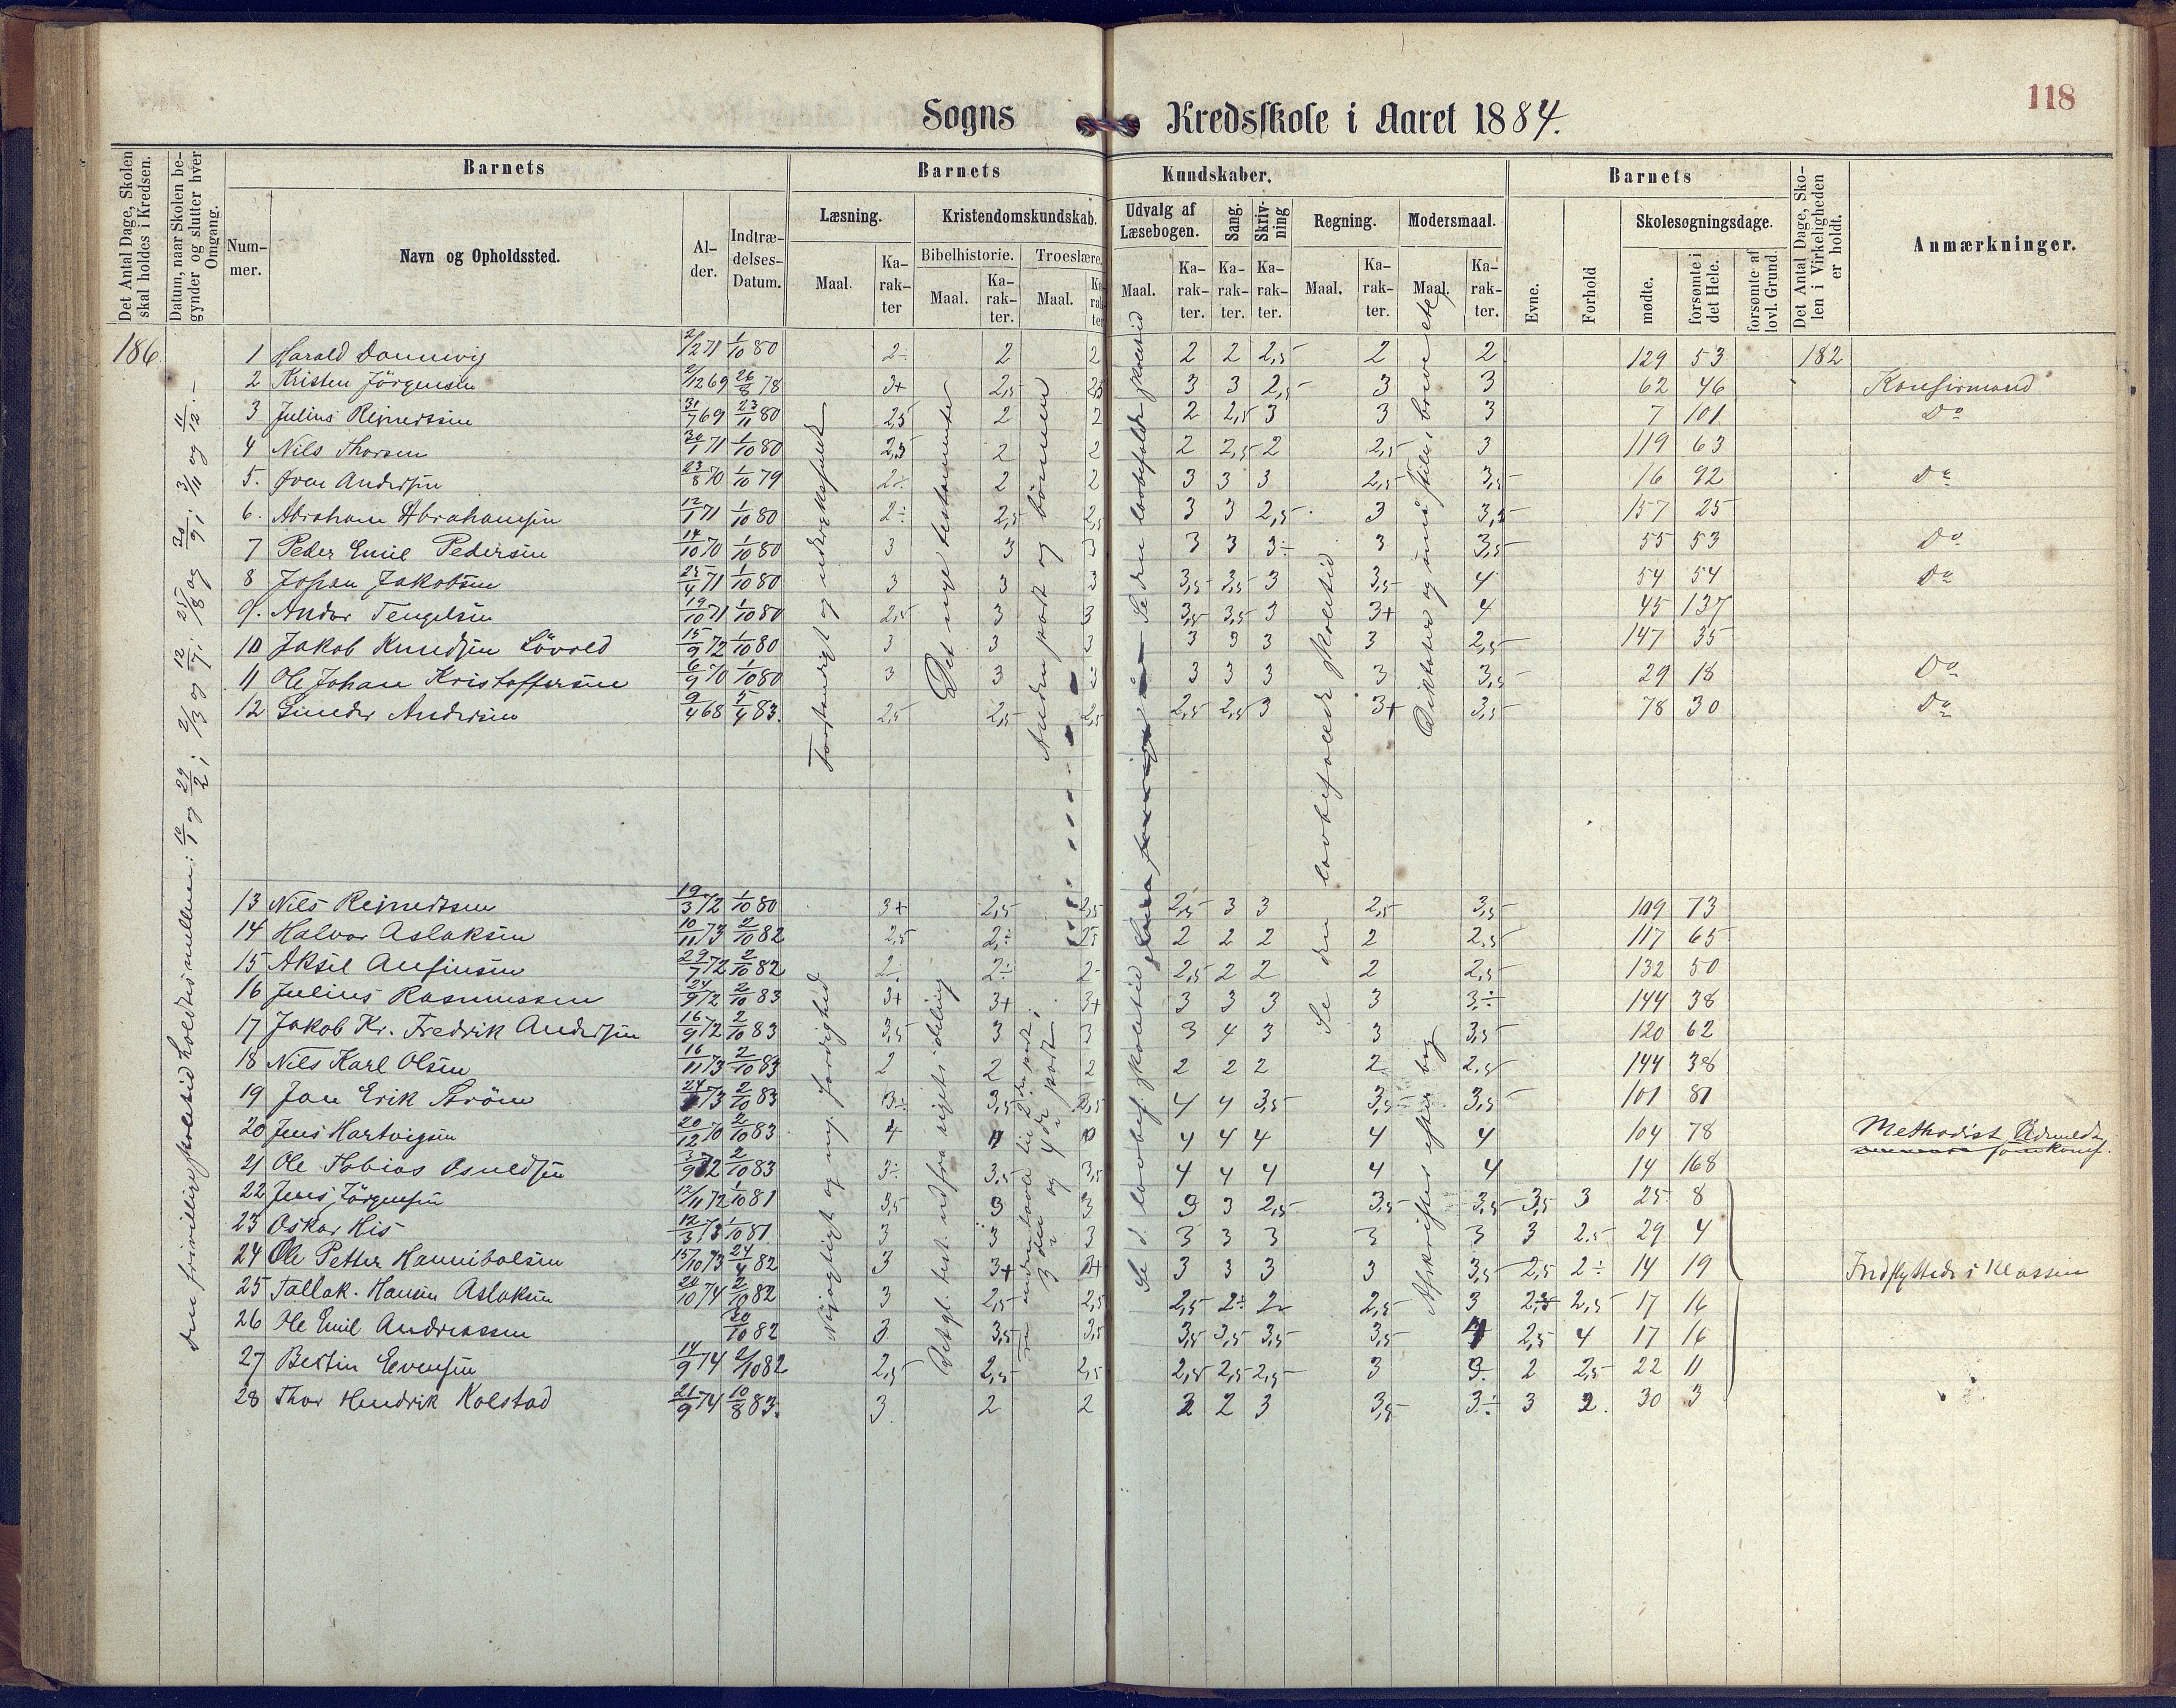 118
Sogns Kredsskole i Aaret 1884.
Det Antal Dage, Skolen skal holdes i Kredsen.
Datum, naar Skolen begynder og slutter hver Omgang.
Barnets
Nummer.
Navn og Opholdssted.
Alder.
Indtrædelses-Datum.
Barnets Kundskaber.
Læsning.
Maal.
Karakter
Kristendomskundskab.
Bibelhistorie.
Maal.
Karakter.
Troeslære.
Maal.
Karakter
Udvalg af Læsebogen.
Maal.
Karakter.
Sang.
Karakter.
Skrivning
Karakter.
Regning.
Maal.
Karakter.
Modersmaal.
Maal.
Karakter.
Barnets
Evne.
Forhold
Skolesøgningsdage.
mødte.
forsømte i det Hele.
forsømte af lovl. Grund.
Det Antal Dage, Skolen i Virkeligheden er holdt.
Anmærkninger.
186
Den frivillige skoletid holdtes mellem: 10/1 og 29/2; 2/3 og 12/7; 25/8 og 20/9; 3/11 og 11/12.–
1 Harald Dannevig 2/12 71 1/10 80 2÷ 2 2 2 2 2,5 2 2 129 53 182
2 Kristen Jörgensen 2/12 69 26/8 78 3+ 2,5 2,5 3 3 2,5 3 3 62 46 Konfirmand
3 Julius Rejnertsen 31/7 69 23/11 80 2,5 2 2 2 2,5 3 3 3 7 101 Do
4 Nils Thorsen 30/1 71 1/10 80 2,5 2 2 2 2,5 2 2,5 3 119 63
5. Andersen 23/8 70 1/10 79 2÷ 2 2 3 3 3 2,5 3,5 16 92 Do
6. Abraham Abrahamsen 12/1 71 1/10 80 2÷ 2,5 2,5 3 3 2,5 3 3,5 157 25
7 Peder Emil Pedersen 14/10 70 1/10 80 3 3 3 3 3 3÷ 3 3,5 55 53 Do
8 Johan Jakobsen 25/4 71 1/10 80 3 3 3 3,5 3,5 3 3,5 4 54 54 Do
9. Andor Tengelsen 19/10 71 1/10 80 2,5 3 3 3,5 3,5 3 3+ 4 45 137
10 Jakob Knudsen Lövold 15/9 72 1/10 80 3 3 3 3 3 3 3 2,5 147 35
11 Ole Johan Kristoffersen 6/9 70 1/10 80 3 3 3 3 3 3 3 3,5 29 18 Do
12 Andersen 9/4 68 5/4 83. 2,5 2,5 2,5 2,5 2,5 3 3+ 3,5 78 30 Do
Forstandigt og udtryksfuldt
Det nye testamente
Anden part og bönnen
Se den lovbefalede skoletid
Se den lovbefalede skoletid
Diktater og små stile, breve etc
13 Nils Rejnertsen 19/3 72 1/10 80 3+ 2,5 2,5 2,5 3 3 2,5 3,5 109 73
14 Halvor Aslaksen 10/11 73 2/10 82 2,5 2÷ 2,5 2 2 2 2 2,5 117 65
15 Aksel Anfinsen 29/7 72 2/10 82 2÷ 2÷ 2÷ 2,5 2 2 2 2,5 132 50
16 Julius Rasmussen 24/9 72 2/10 83 3+ 3+ 3+ 3 3 3 3 3÷ 144 38
17 Jakob Kr. Fredrik Andersen 16/9 72 2/10 83 3,5 3 3 3 4 3 3 3,5 120 62
18 Nils Karl Olsen 16/11 73 2/10 83 2 2 2 2 2 2 2 2,5 144 38
19 Jan Erik Ström 24/ 73 2/10 83 3÷ 3,5 3,5 4 4 3,5 3,5 3,5 101 81
20 Jens Hartvigsen 20/12 70 2/10 83 4 4 4 4 4 4 104 78 Methodist Udmeldt
21 Ole Tobias Osuldsen 3/9 72 2/10 83 3÷ 3,5 3,5 4 4 4 4 4 14 168
22 Jens Jörgensen 12/11 72 1/10 81 3,5 3 3 3 3 2,5 3,5 3,5 3,5 3 25 8
23 Oskar His 12/3 73 1/10 81 3 3 3 3 3 3 3 3 3 2.5 29 4
24 Ole Petter Hannibalsen 15/10 73 24/4 82 3 3+ 3+ 3 3 3 3 3,5 2,5 2÷ 14 19 Indflyttede i Klassen
25 Tallak. Hansen Aslaksen 24/10 74 2/10 82 3 2,5 2,5 2,5 2÷ 2 2,5 3 2,5 2,5 17 16
26 Ole Emil Andreassen 20/10 82 3 3,5 3,5 3,5 3,5 3,5 3,5 4 2,5 4 17 16
27 Bertin Evensen 14/9 74 2/10 82 2,5 2,5 2,5 2,5 2,5 2,5 3 3 2 2,5 22 11
28 Thor Hendrik Kolstad 21/9 74 10/8 83. 3. 2 2 2 2 3 3,5 3÷ 3 2. 30 3
Nöjagtigt og m. færdighed
Se d. lovbef. skoletid
Afskrifter efter bog
3die og 4de part